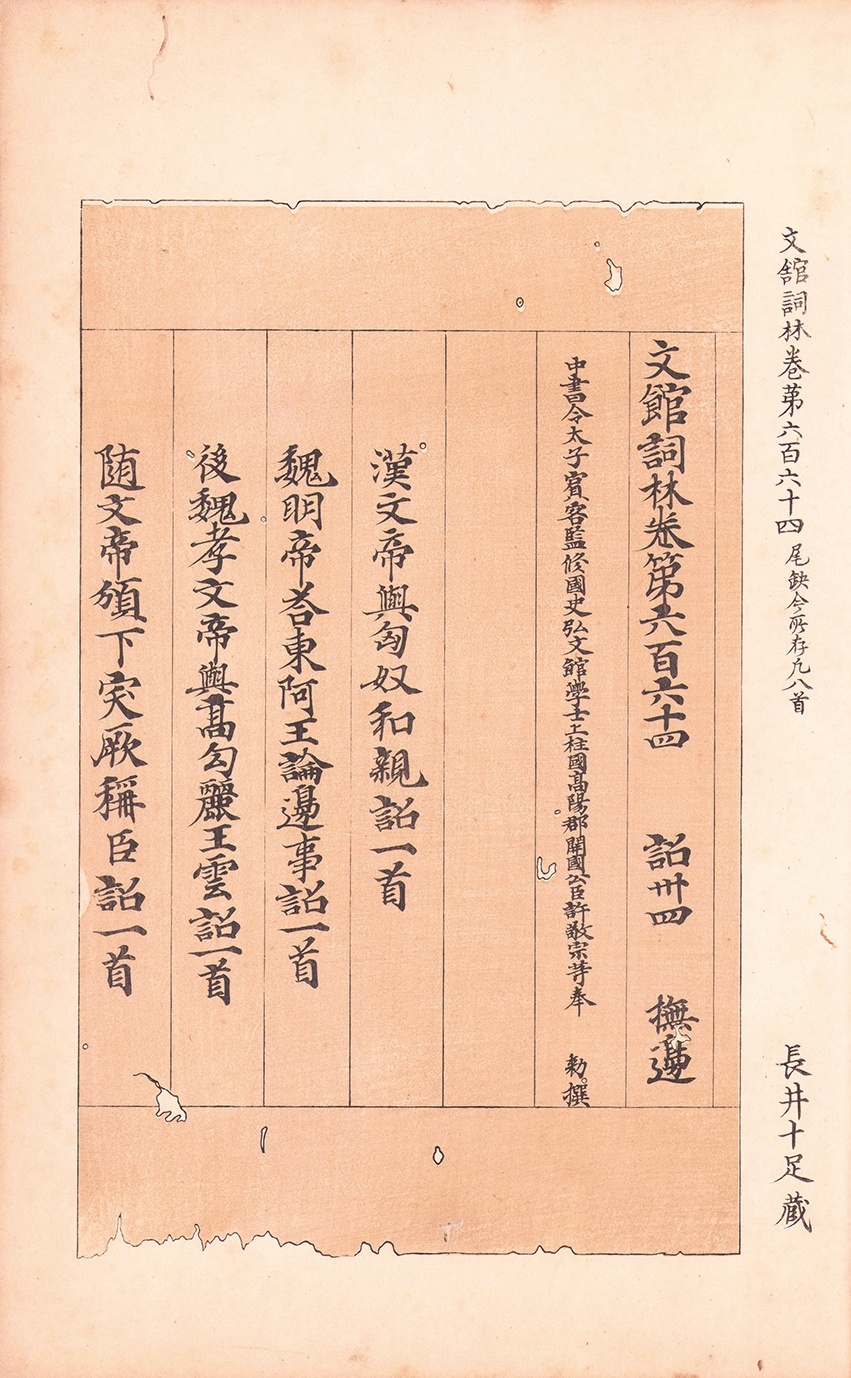 文舘詞林卷苐六百六十四 尾缺今所存凡八首
長井十足蔵
文館詞林卷第六百六十四 詔卅四 撫邊
中書令太子賓客監修國史弘文館學士上柱國髙陽郡開國公臣許敬宗等奉 勑撰
漢文帝與匈奴和親詔一首
魏明帝荅東阿王論邊事詔一首
後魏孝文帝與髙勾麗王雲詔一首
随文帝頒下突厥稱臣詔一首